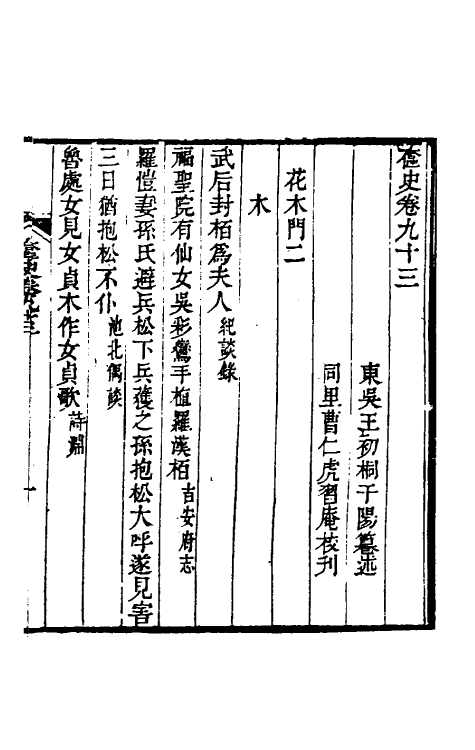 奩史卷九十三
東吳王初桐于陽纂述
同里曹仁虎習庵校刋
花木門二
木
武后封栢爲夫人紀談錄
福聖院有仙女吳彩鸞手植羅漢栢吉安府志
羅愷妻孫氏避兵松下兵獲之孫抱松大呼遂見害
三日猶抱松不仆池北偶談
魯處女見女貞木作女貞歌詩淵
奩史卷九十三
一